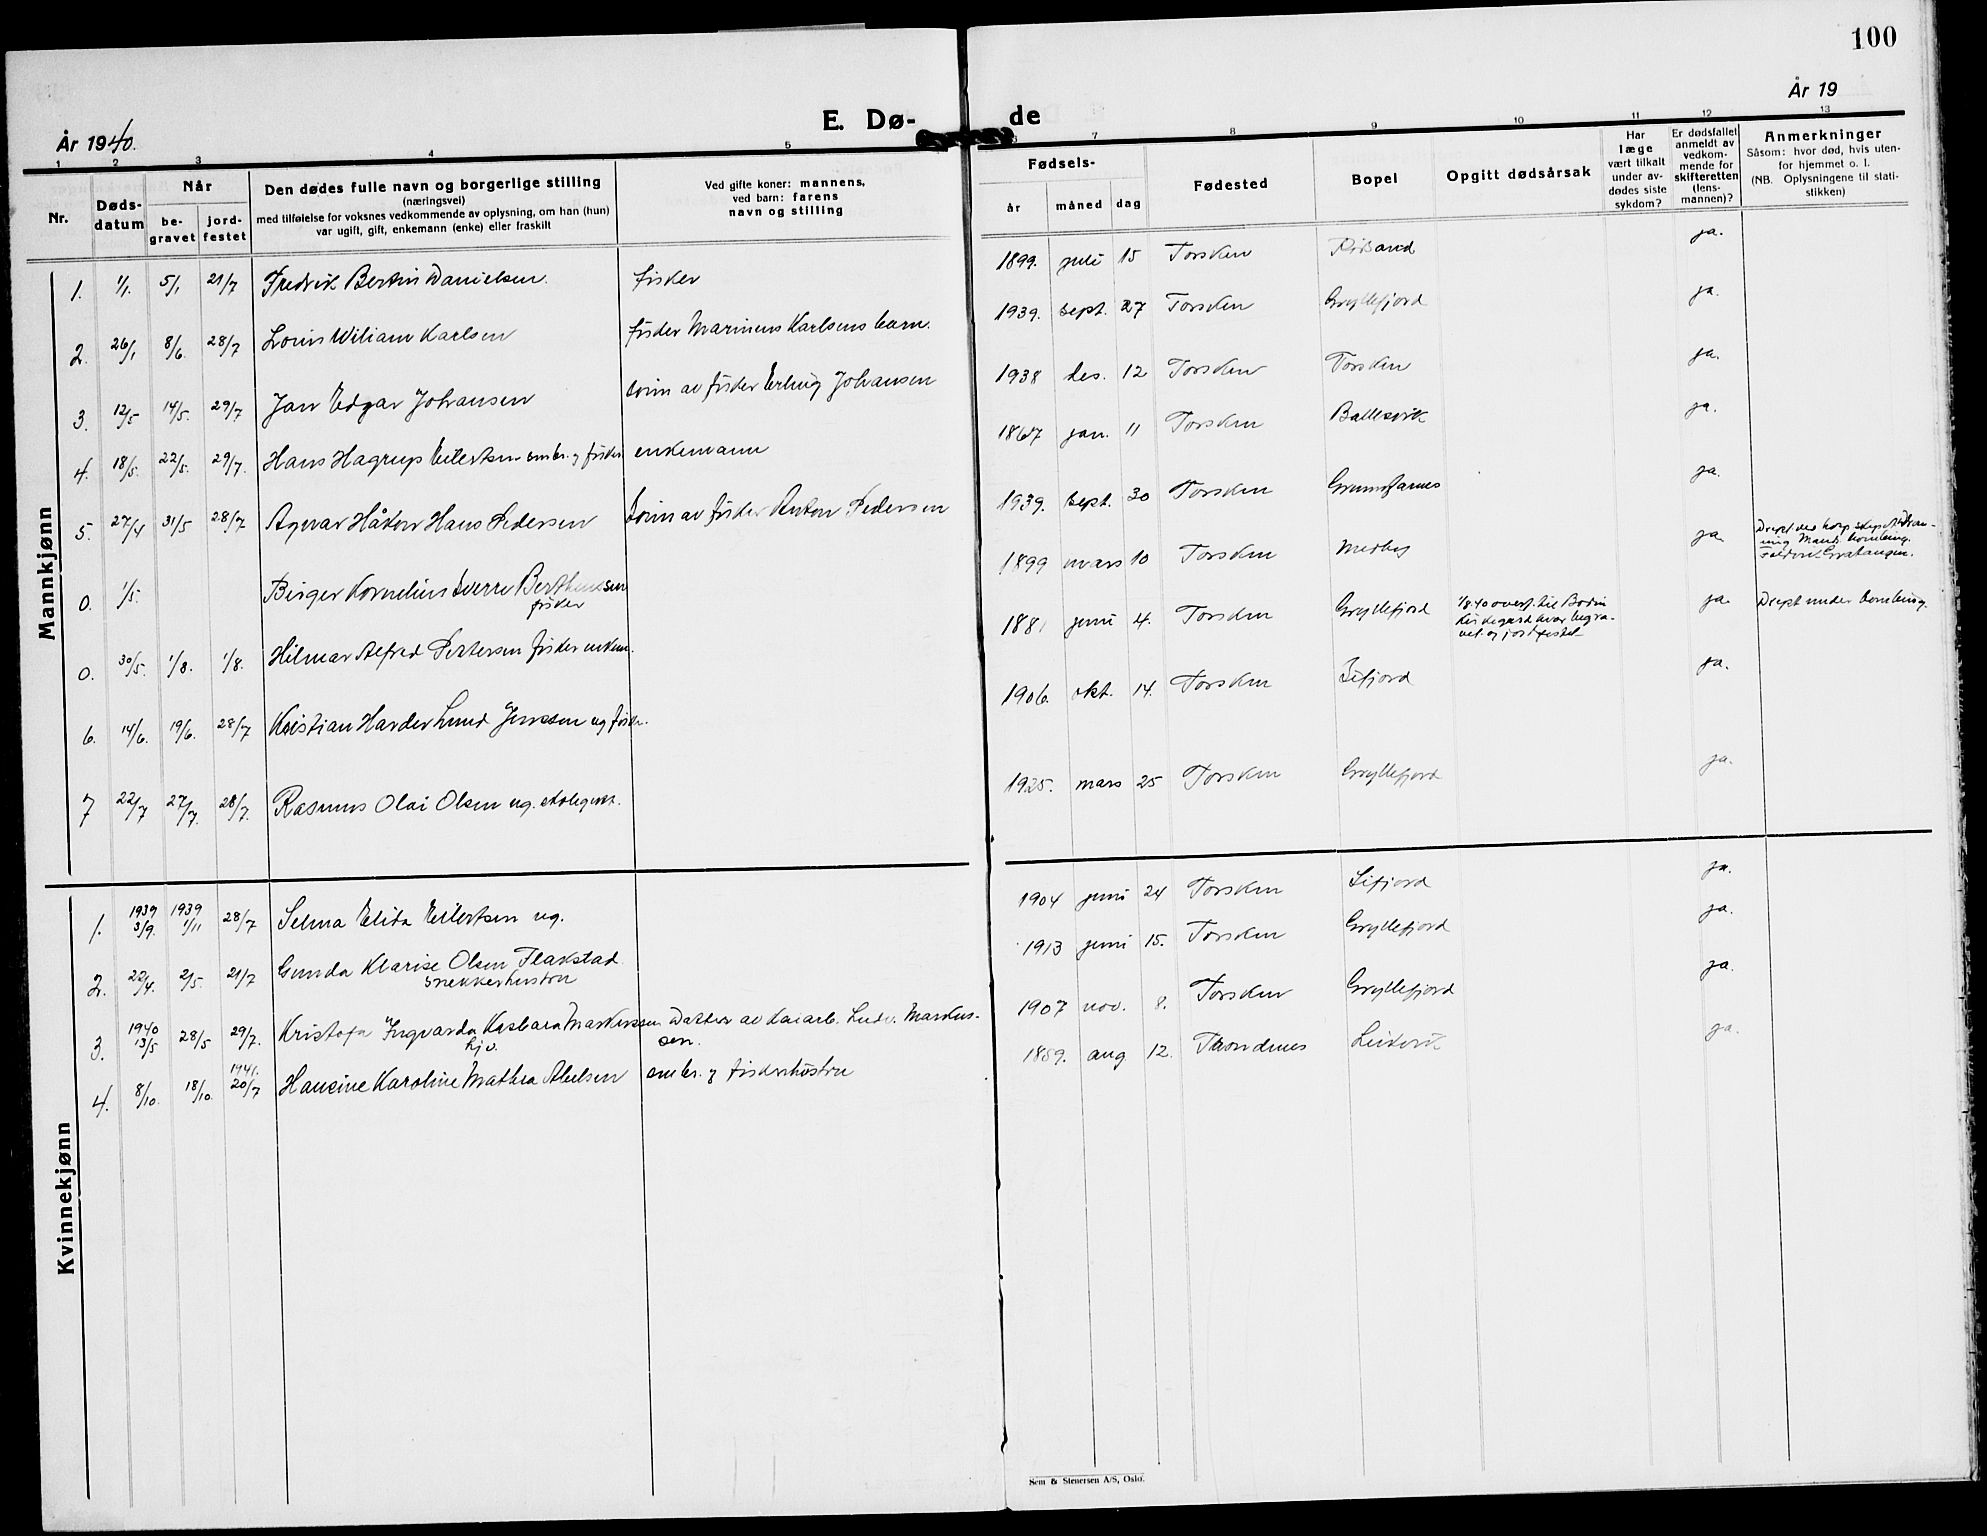 100
År 1940.
E. Dø-
de
År 19
1 2 3 4 5 6 7 8 9 10 11 12 13
Nr.
Døds-
datum
Når
be-
gravet
jord-
festet
Den dødes fulle navn og borgerlige stilling
(næringsvei)
med tilføielse for voksnes vedkommende av oplysning, om han (hun)
var ugift, gift, enkemann (enke) eller fraskilt
Ved gifte koner: mannens,
ved barn: farens
navn og stilling
Fødsels-
år måned dag
Fødested
Bopel
Opgitt dødsårsak
Har
læge
vært tilkalt
under av-
dødes siste
sykdom?
Er dødsfallet
anmeldt av
vedkom-
mende for
skifteretten
(lens-
mannen)?
Anmerkninger
Såsom: hvor død, hvis uten-
for hjemmet o. l.
(NB. Oplysningene til stati-
stikken)
Mannkjønn
1. 1/1. 5/1 21/7 Fredrik Bertin Danielsen. fisker 1899. juli 15 Torsken ja.
2. 26/1 8/6. 28/7 Louis Wiliam Karlsen fisker Marinius Karlsens barn. 1939. sept. 27 Torsken Gryllefjord ja.
3. 12/5 14/5. 29/7 Jan Edgar Johansen sønn av fisker Erling Johansen 1938 des. 12 Torsken Torsken ja.
4. 18/5. 22/5. 29/7. Hans Hagrup Eilertsen småbr. og fisker enkemann 1867 jan. 11 Torsken Ballesvik ja.
5. 27/4 31/5 28/7 Agnar Håkon Hans Pedersen Sønn av fisker Anton Pedersen 1939. sept. 30 Torsken Grunnfarnes ja.
0. 1/5. Birger Kornelius Sverre Berthinussen
fisker
1899 mars 10 Torsken Medby ja.
Gratangen.
0. 30/5. 1/8. 1/8. Hilmar Alfred Pettersen fisker enkem. 1881 juni 4. Torsken Gryllefjord
1/8.40 overf. til Bodin
kirkegård hvor begra-
vet og jordfestet
ja. Drept under bombing.
6. 14/6. 19/6. 28/7 Kristian Harder Lund Jenssen ug fisker. 1906. okt. 14. Torsken Sifjord ja.
7 22/7 27/7. 28/7. Rasmus Olai Olsen ug. skolegutt. 1925. mars 25 Torsken Gryllefjord ja.
Kvinnekjønn
1. 1939 3/9. 1939 1/11 28/7 Selma Elida Eilertsen ug. 1904 juni 24 Torsken Sifjord ja.
2. 22/4. 2/5. 21/7 Gunda Klarise Olsen Flakstad
snekkerhustru
1913 juni 15. Torsken Gryllefjord ja.
3. 1940 13/5 28/5 29/7. Kristofa Ingvarda Kasbara Markussen Datter av kaiarb. Ludv. Markus-
hjv. sen.
1907 nov. 8. Torsken Gryllefjord ja.
4. 8/10. 18/10. 1941. 20/7 Hansine Karoline Mathea Abelsen småbr. og fiskerhustru 1859. aug 12. Trondenes Leikvik ja.
Sem & Stenersen A/S, Oslo.